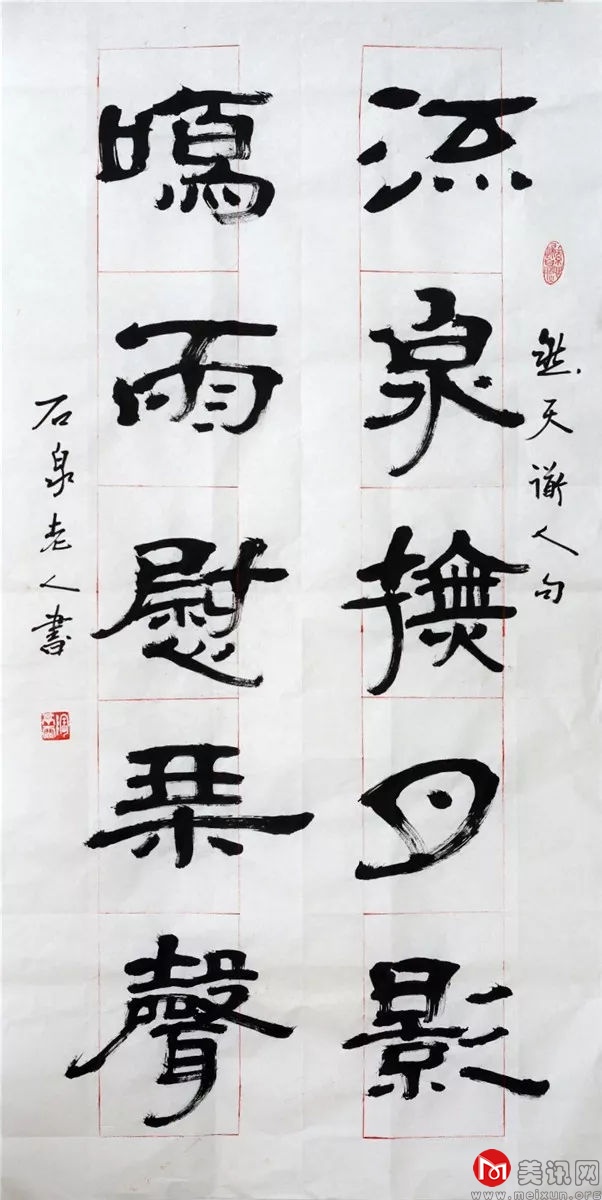 然天谢人句
流泉撫月影
鳴雨慰琹聲
石泉老人書
美讯网
www.meixun.org